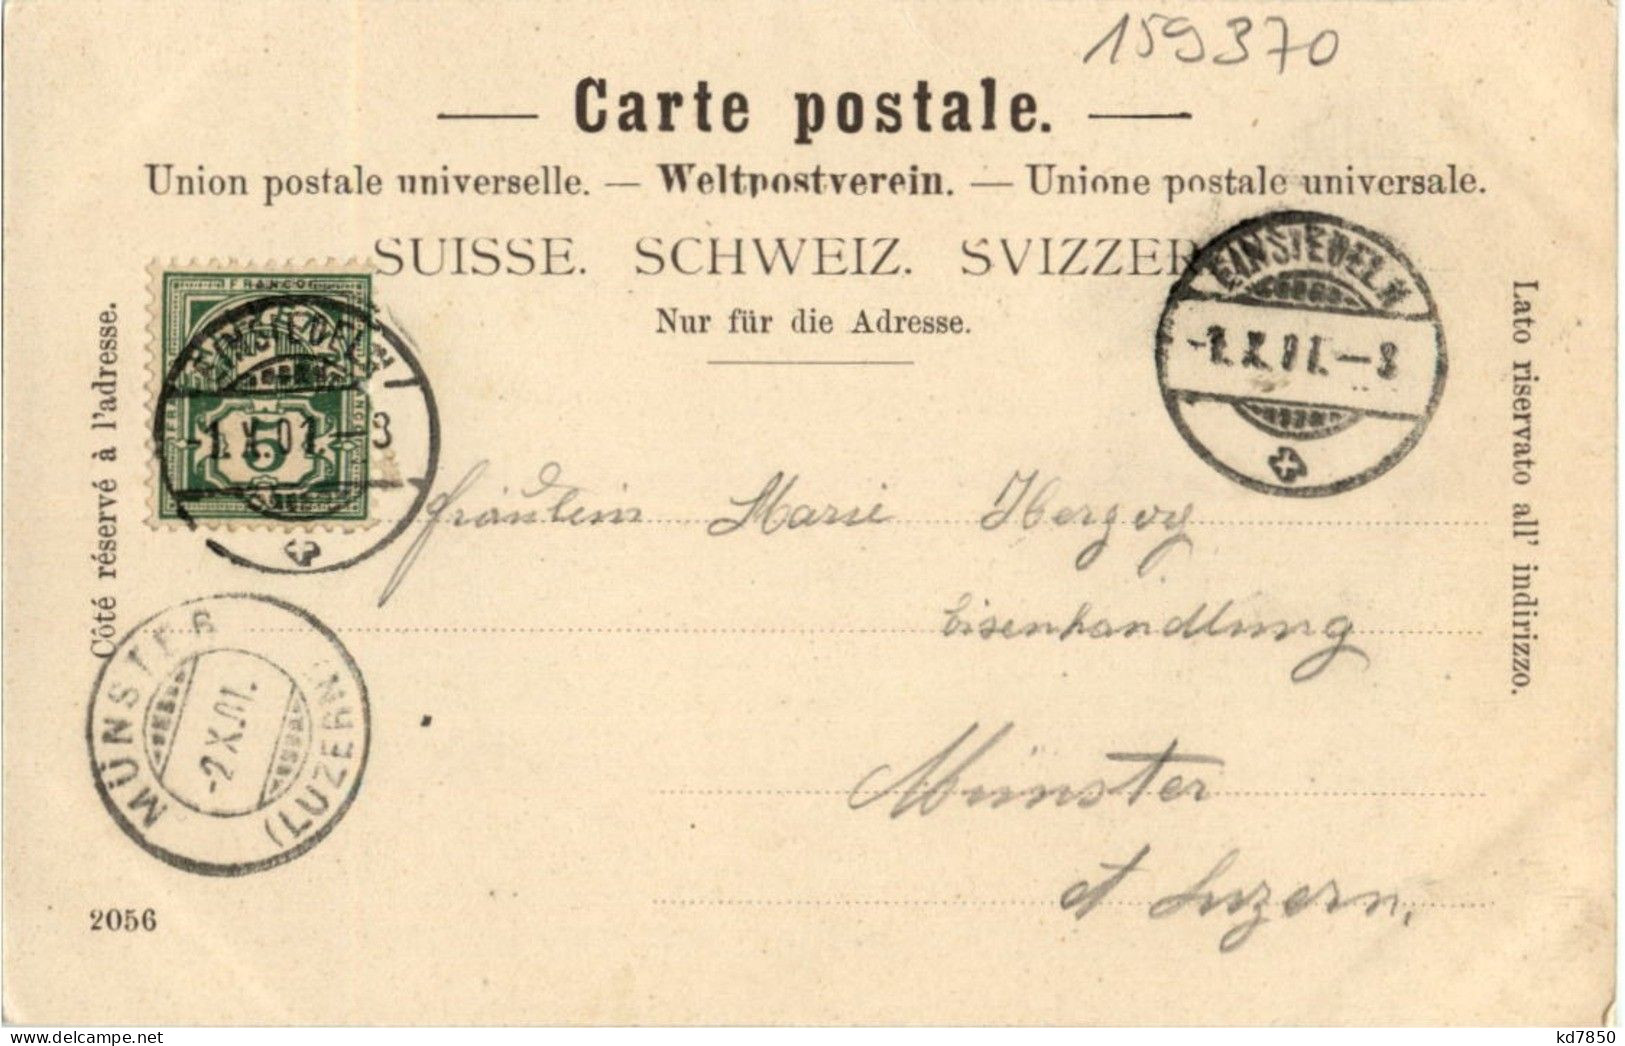 159370
Carte postale.
Union postale universelle. — Weltpostverein. — Unione postale universale.
SUISSE. SCHWEIZ. SVIZZER
Nur für die Adresse.
Côté réservé à l'adresse.
Lato riservato all' indirizzo.
FRANCO
5
EINSIEDELN
-1.X.01.-3
EINSIEDELN
-1.X.01.-3
Fräulein Marie Herzog
Eisenhandlung
Münster
Ct Luzern.
MÜNSTER
-2.X.01.
(LUZERN)
2056
delcampe.net
kd7850